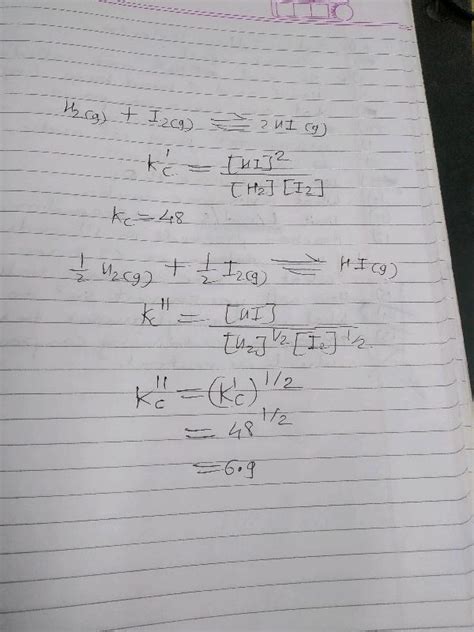 H₂(g) + I₂(g) ⇌ 2HI(g)
Kc' = [HI]² / [H₂][I₂]
Kc = 48
1/2 H₂(g) + 1/2 I₂(g) ⇌ HI(g)
K'' = [HI] / [H₂]^1/2 [I₂]^1/2
Kc'' = (Kc')^1/2
= 48^1/2
= 6.9